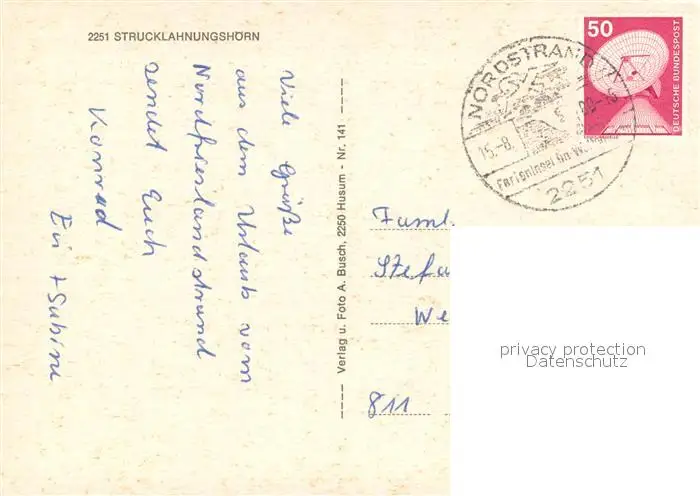 2251 STRUCKLAHNUNGSHÖRN
Viele Grüße
aus dem Urlaub vom
Nordfriesland strand
sendet Euch
Konrad
+ Sabine
Verlag u. Foto A. Busch, 2250 Husum - Nr. 141
50
DEUTSCHE BUNDESPOST
NORDSTRAND
15.-8.
Ferieninsel
2251
Faml.
Stefa
We
811
privacy protection
Datenschutz